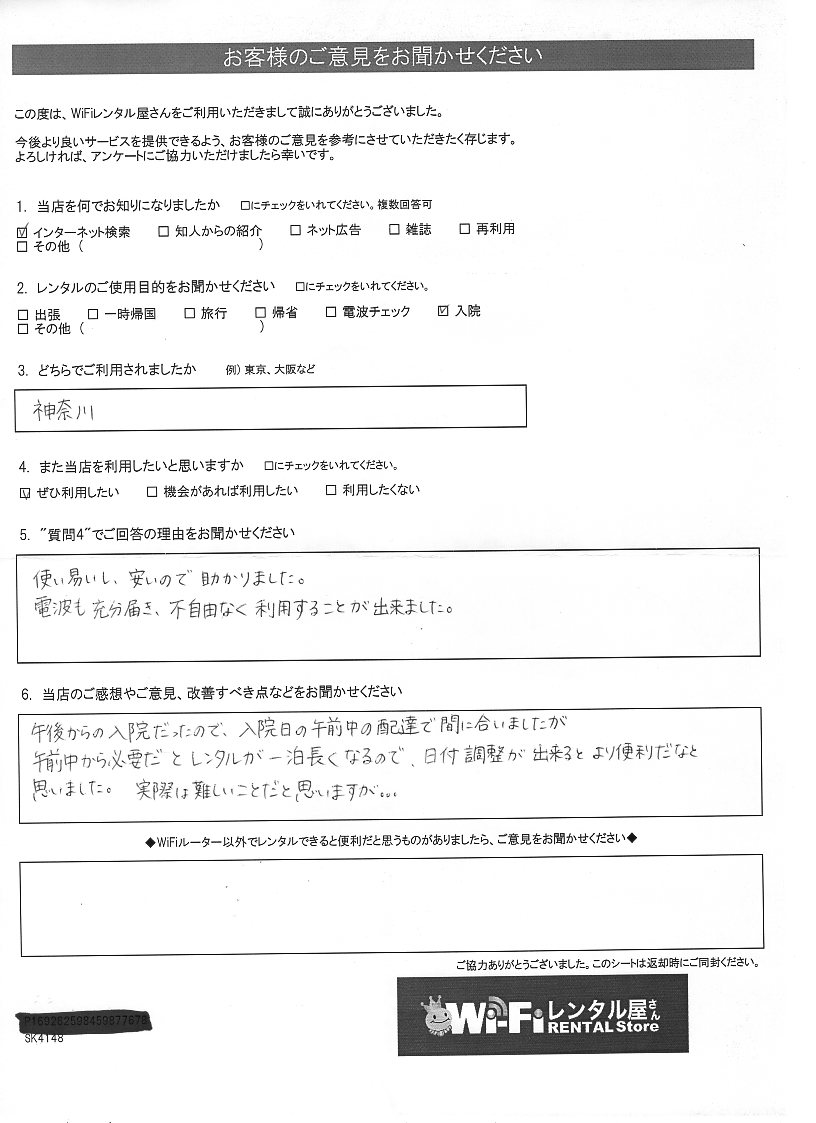 お客様のご意見をお聞かせください
この度は、WiFiレンタル屋さんをご利用いただきまして誠にありがとうございました。
今後より良いサービスを提供できるよう、お客様のご意見を参考にさせていただきたく存じます。
よろしければ、アンケートにご協力いただけましたら幸いです。
1. 当店を何でお知りになりましたか □にチェックをいれてください。複数回答可
☑ インターネット検索 □ 知人からの紹介 □ ネット広告 □ 雑誌 □ 再利用
□ その他 ( )
2. レンタルのご使用目的をお聞かせください □にチェックをいれてください。
□ 出張 □ 一時帰国 □ 旅行 □ 帰省 □ 電波チェック ☑ 入院
□ その他 ( )
3. どちらでご利用されましたか 例) 東京、大阪など
神奈川
4. また当店を利用したいと思いますか □にチェックをいれてください。
☑ ぜひ利用したい □ 機会があれば利用したい □ 利用したくない
5. "質問4"でご回答の理由をお聞かせください
使い易いし、安いので助かりました。
電波も充分届き、不自由なく利用することが出来ました。
6. 当店のご感想やご意見、改善すべき点などをお聞かせください
午後からの入院だったので、入院日の午前中の配達で間に合いましたが
午前中から必要だとレンタルが一泊長くなるので、日付調整が出来るとより便利だなと
思いました。 実際は難しいことだと思いますが。。。
◆WiFiルーター以外でレンタルできると便利だと思うものがありましたら、ご意見をお聞かせください◆
ご協力ありがとうございました。このシートは返却時にご同封ください。
SK4148
Wi-Fiレンタル屋さん
RENTAL Store